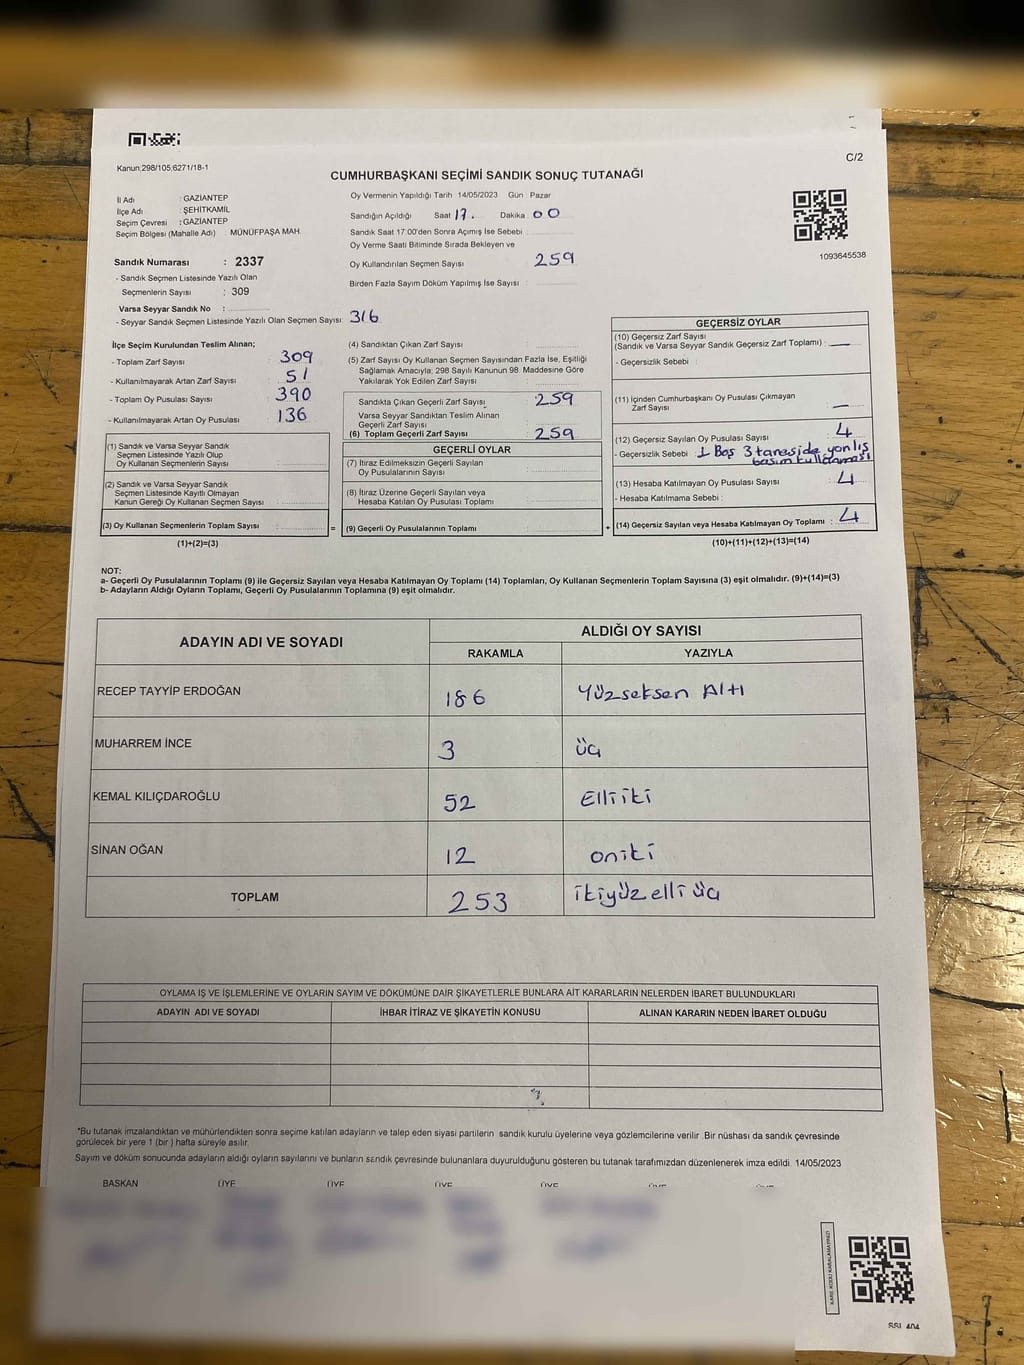 Kanun;298/105;6271/18-1
C/2
CUMHURBAŞKANI SEÇİMİ SANDIK SONUÇ TUTANAĞI
İl Adı : GAZİANTEP
İlçe Adı : ŞEHİTKAMİL
Seçim Çevresi : GAZİANTEP
Seçim Bölgesi (Mahalle Adı) : MÜNÜFPAŞA MAH.
Oy Vermenin Yapıldığı Tarih 14/05/2023 Gün : Pazar
Sandığın Açıldığı Saat 17. Dakika : 00
Sandık Saat 17:00'den Sonra Açımış İse Sebebi :
Oy Verme Saati Bitiminde Sırada Bekleyen ve
Oy Kullandırılan Seçmen Sayısı 259
Birden Fazla Sayım Döküm Yapılmış İse Sayısı :
1093645538
Sandık Numarası : 2337
- Sandık Seçmen Listesinde Yazılı Olan
Seçmenlerin Sayısı : 309
Varsa Seyyar Sandık No :
- Seyyar Sandık Seçmen Listesinde Yazılı Olan Seçmen Sayısı: 316
İlçe Seçim Kurulundan Teslim Alınan;
- Toplam Zarf Sayısı : 309
- Kullanılmayarak Artan Zarf Sayısı : 51
- Toplam Oy Pusulası Sayısı : 390
- Kullanılmayarak Artan Oy Pusulası : 136
(1) Sandık ve Varsa Seyyar Sandık
Seçmen Listesinde Yazılı Olup
Oy Kullanan Seçmenlerin Sayısı :
(2) Sandık ve Varsa Seyyar Sandık
Seçmen Listesinde Kayıtlı Olmayan
Kanun Gereği Oy Kullanan Seçmen Sayısı :
(3) Oy Kullanan Seçmenlerin Toplam Sayısı : =
(1)+(2)=(3)
(4) Sandıktan Çıkan Zarf Sayısı :
(5) Zarf Sayısı Oy Kullanan Seçmen Sayısından Fazla İse, Eşitliği
Sağlamak Amacıyla; 298 Sayılı Kanunun 98. Maddesine Göre
Yakılarak Yok Edilen Zarf Sayısı :
Sandıkta Çıkan Geçerli Zarf Sayısı 259
Varsa Seyyar Sandıktan Teslim Alınan
Geçerli Zarf Sayısı :
(6) Toplam Geçerli Zarf Sayısı : 259
GEÇERLİ OYLAR
(7) İtiraz Edilmeksizin Geçerli Sayılan
Oy Pusulalarının Sayısı :
(8) İtiraz Üzerine Geçerli Sayılan veya
Hesaba Katılan Oy Pusulası Toplamı :
(9) Geçerli Oy Pusulalarının Toplamı : +
GEÇERSİZ OYLAR
(10) Geçersiz Zarf Sayısı
(Sandık ve Varsa Seyyar Sandık Geçersiz Zarf Toplamı) : —
- Geçersizlik Sebebi :
(11) İçinden Cumhurbaşkanı Oy Pusulası Çıkmayan
Zarf Sayısı : —
(12) Geçersiz Sayılan Oy Pusulası Sayısı : 4
- Geçersizlik Sebebi : 1 Boş 3 taneside yanlış
basım kullanması
(13) Hesaba Katılmayan Oy Pusulası Sayısı : 4
- Hesaba Katılmama Sebebi :
(14) Geçersiz Sayılan veya Hesaba Katılmayan Oy Toplamı : 4
(10)+(11)+(12)+(13)=(14)
NOT:
a- Geçerli Oy Pusulalarının Toplamı (9) ile Geçersiz Sayılan veya Hesaba Katılmayan Oy Toplamı (14) Toplamları, Oy Kullanan Seçmenlerin Toplam Sayısına (3) eşit olmalıdır. (9)+(14)=(3)
b- Adayların Aldığı Oyların Toplamı, Geçerli Oy Pusulalarının Toplamına (9) eşit olmalıdır.
ADAYIN ADI VE SOYADI ALDIĞI OY SAYISI
RAKAMLA YAZIYLA
RECEP TAYYİP ERDOĞAN 186 Yüzseksen Altı
MUHARREM İNCE 3 üç
KEMAL KILIÇDAROĞLU 52 Elliiki
SİNAN OĞAN 12 oniki
TOPLAM 253 ikiyüzelliüç
OYLAMA İŞ VE İŞLEMLERİNE VE OYLARIN SAYIM VE DÖKÜMÜNE DAİR ŞİKAYETLERLE BUNLARA AİT KARARLARIN NELERDEN İBARET BULUNDUKLARI
ADAYIN ADI VE SOYADI İHBAR İTİRAZ VE ŞİKAYETİN KONUSU ALINAN KARARIN NEDEN İBARET OLDUĞU
*Bu tutanak imzalandıktan ve mühürlendikten sonra seçime katılan adayların ve talep eden siyasi partilerin sandık kurulu üyelerine veya gözlemcilerine verilir. Bir nüshası da sandık çevresinde
görülecek bir yere 1 (bir ) hafta süreyle asılır.
Sayım ve döküm sonucunda adayların aldığı oyların sayılarını ve bunların sandık çevresinde bulunanlara duyurulduğunu gösteren bu tutanak tarafımızdan düzenlenerek imza edildi. 14/05/2023
BAŞKAN ÜYE ÜYE ÜYE ÜYE ÜYE ÜYE